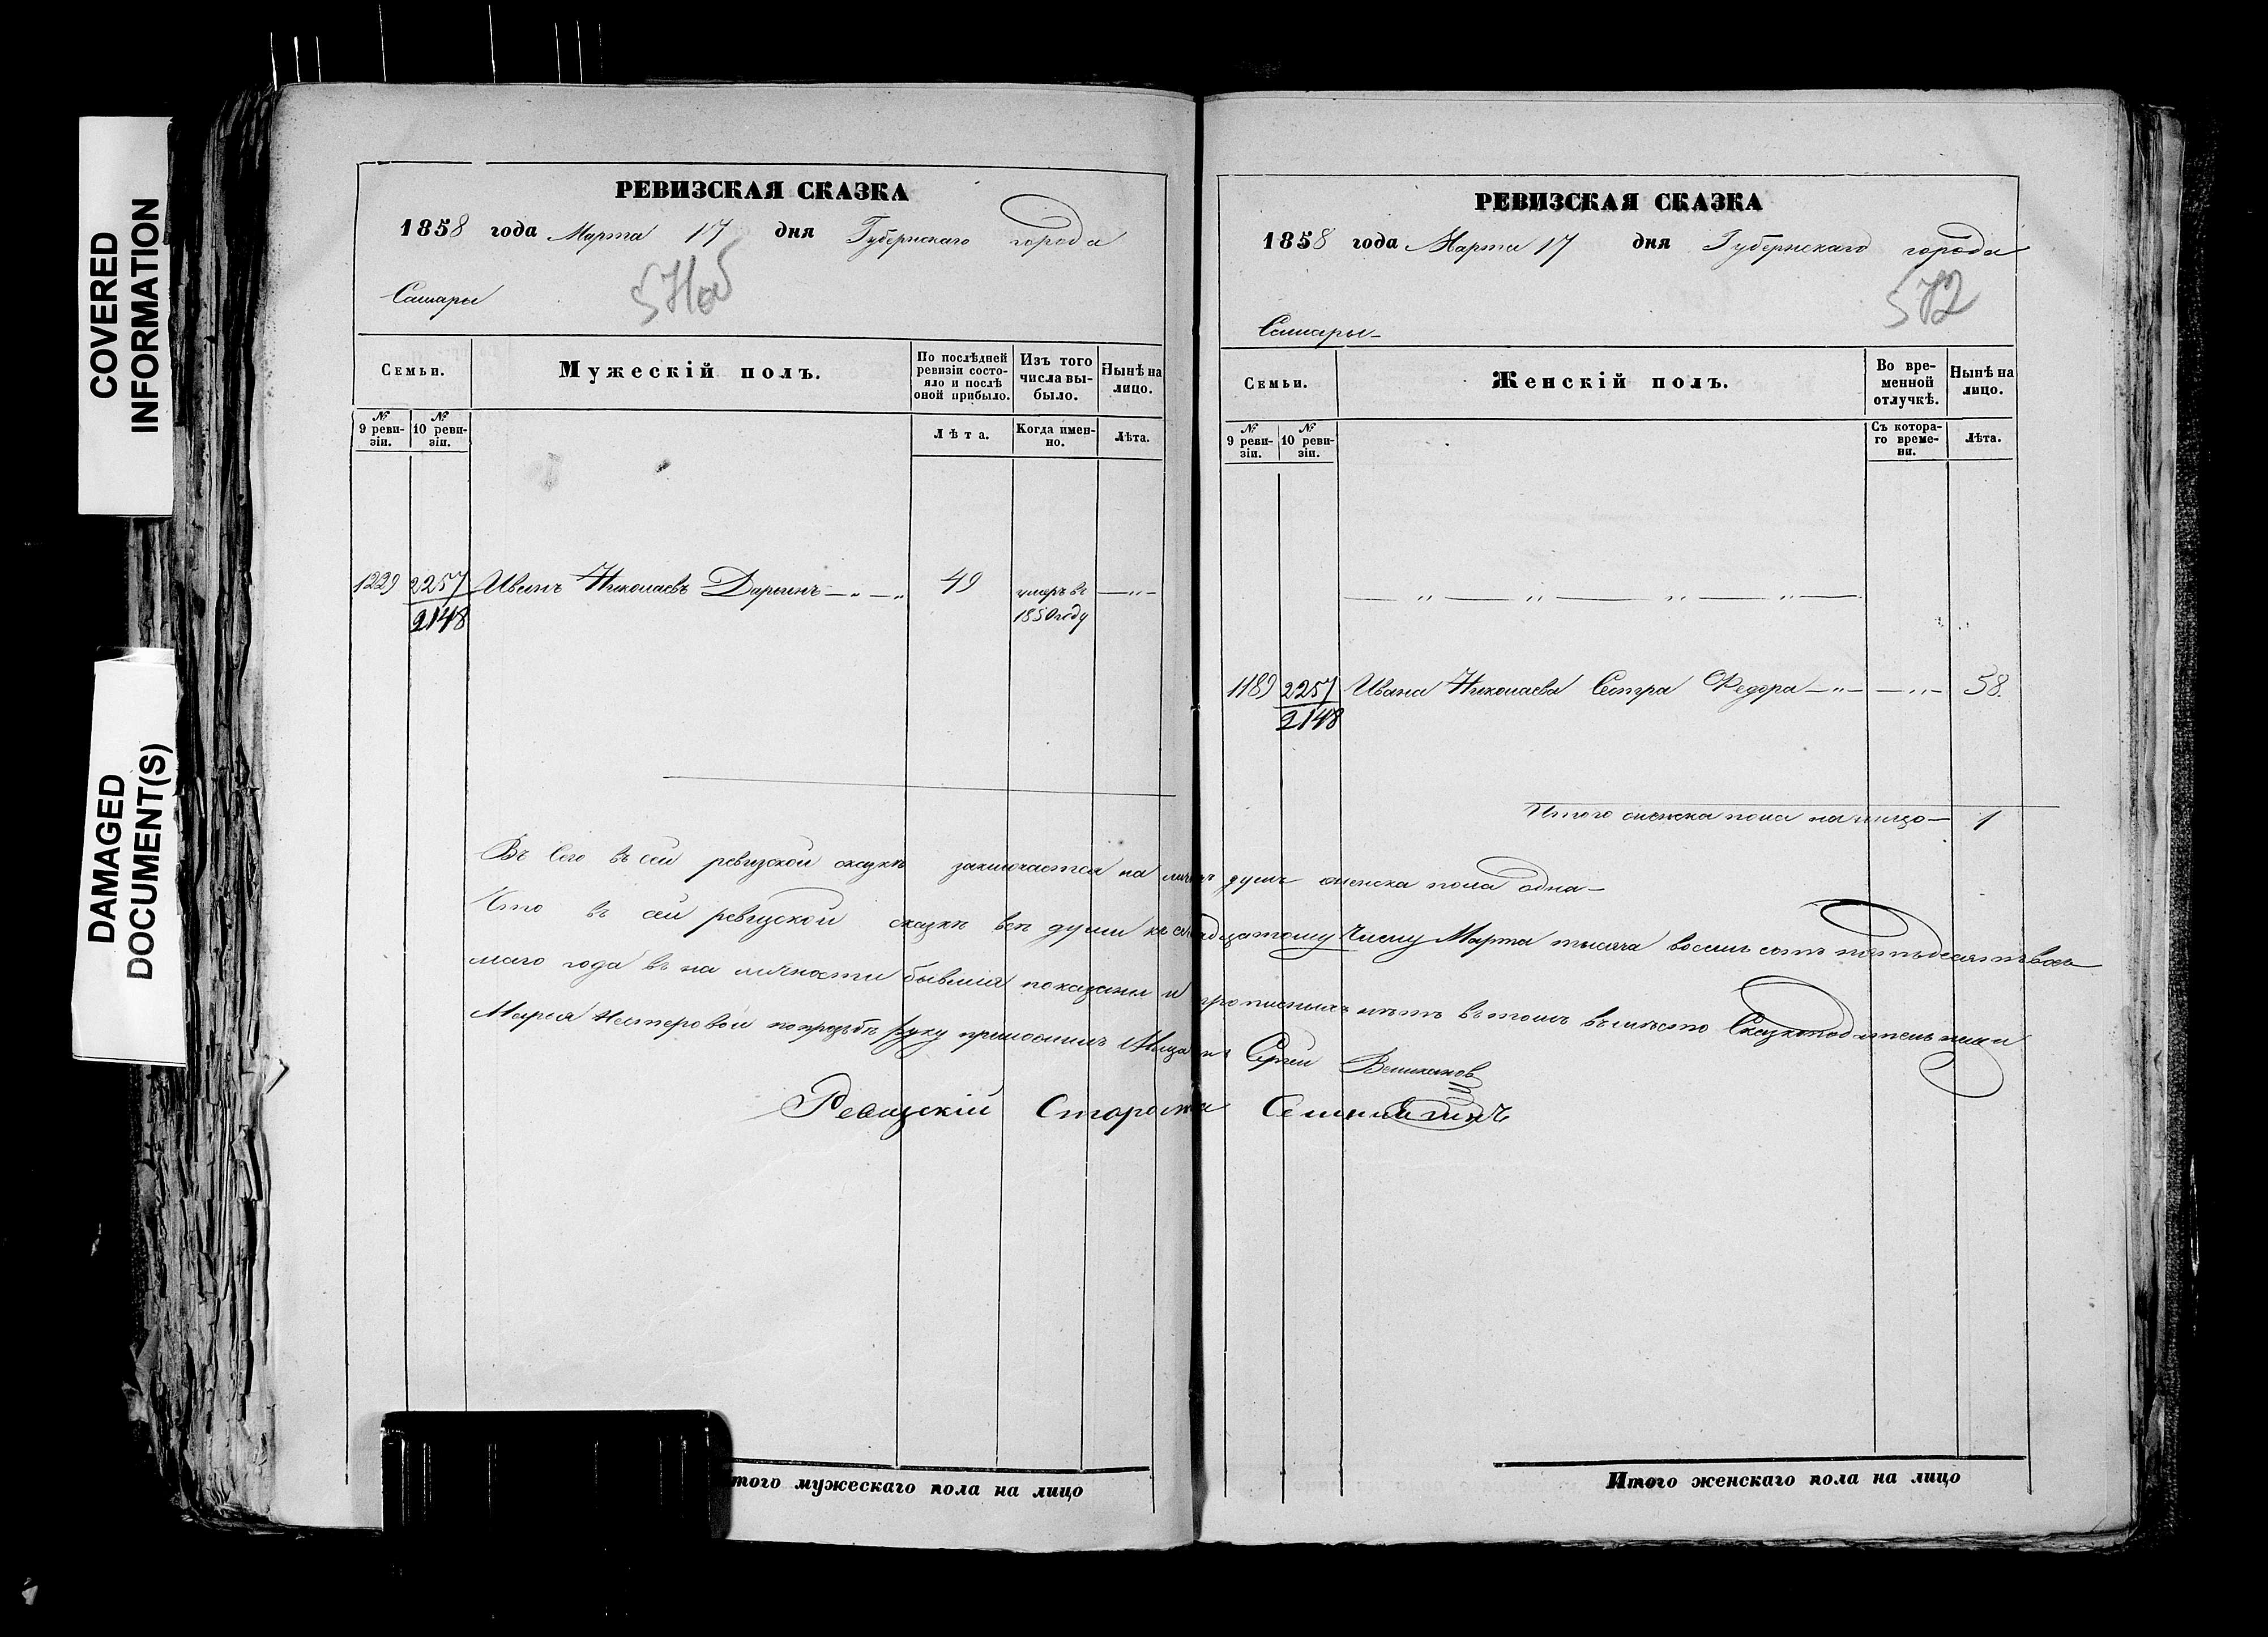 COVERED
INFORMATION
DAMAGED
DOCUMENT(S)
РЕВИЗСКАЯ СКАЗКА
1858 года Марта 17 дня Губернскаго города
Самары
571об
Семьи.
Мужескій полъ.
По послѣдней
ревизіи состо-
яло и послѣ
оной прибыло.
Изъ того
числа вы-
было.
Нынѣ на
лицо.
№
9 реви-
зіи.
№
10 реви-
зіи.
Лѣта.
Когда имен-
но.
Лѣта.
1229 2257 Иванъ Николаевъ Дарьинъ — „ — „ 49 умеръ въ — „ —
2148 1850 году
РЕВИЗСКАЯ СКАЗКА
1858 года Марта 17 дня Губернскаго города
572
Самары
Семьи.
Женскій полъ.
Во вре-
менной
отлучкѣ.
Нынѣ на
лицо.
№
9 реви-
зіи.
№
10 реви-
зіи.
Съ котора-
го време-
ни.
Лѣта.
— „ — „ — „ — „ —
1189 2257 Ивана Николаева Сестра Федора — „ — — „ — 58.
2148
Итого женска пола на лицо — 1
Въ Сего въ сей ревизской сказкѣ заключается на лицо душъ женска пола одна —
Что въ сей ревизской сказкѣ всѣ души къ семнадцатому Числу Марта тысяча восемь сотъ пятьдесятъ вось
маго года въ на личности бывшія показаны и прописныхъ нѣтъ въ томъ вмѣсто Сказкоподательницы
Марья Нестеровой по прозьбѣ руку приложилъ Мѣщанинъ Сергѣй Великановъ
Ревизскій Староста
того мужескаго пола на лицо
Итого женскаго пола на лицо